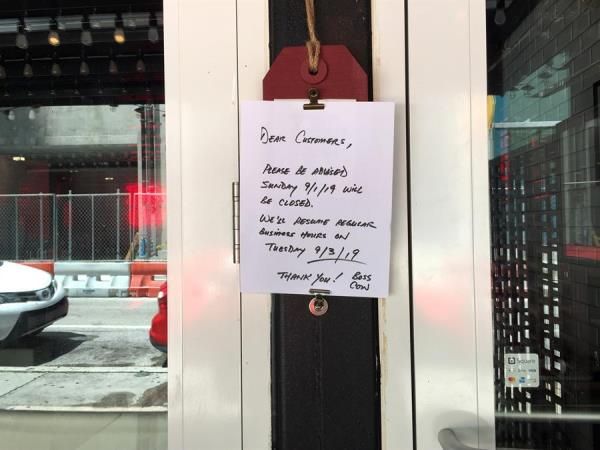 DEAR CUSTOMERS,
PLEASE BE ADVISED
SUNDAY 9/1/19 WILL
BE CLOSED.
WE'LL RESUME REGULAR
BUSINESS HOURS ON
TUESDAY 9/3/19
THANK YOU! BOSS
COW
Square